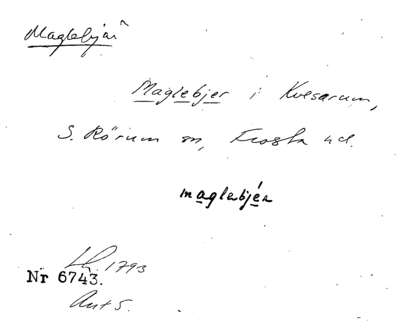 Maglebjär
Maglebjer i Kvesarum,
S. Rörum sn, Frosta hd.
maglebjéa
1793
Nr 6743.
Ant S.